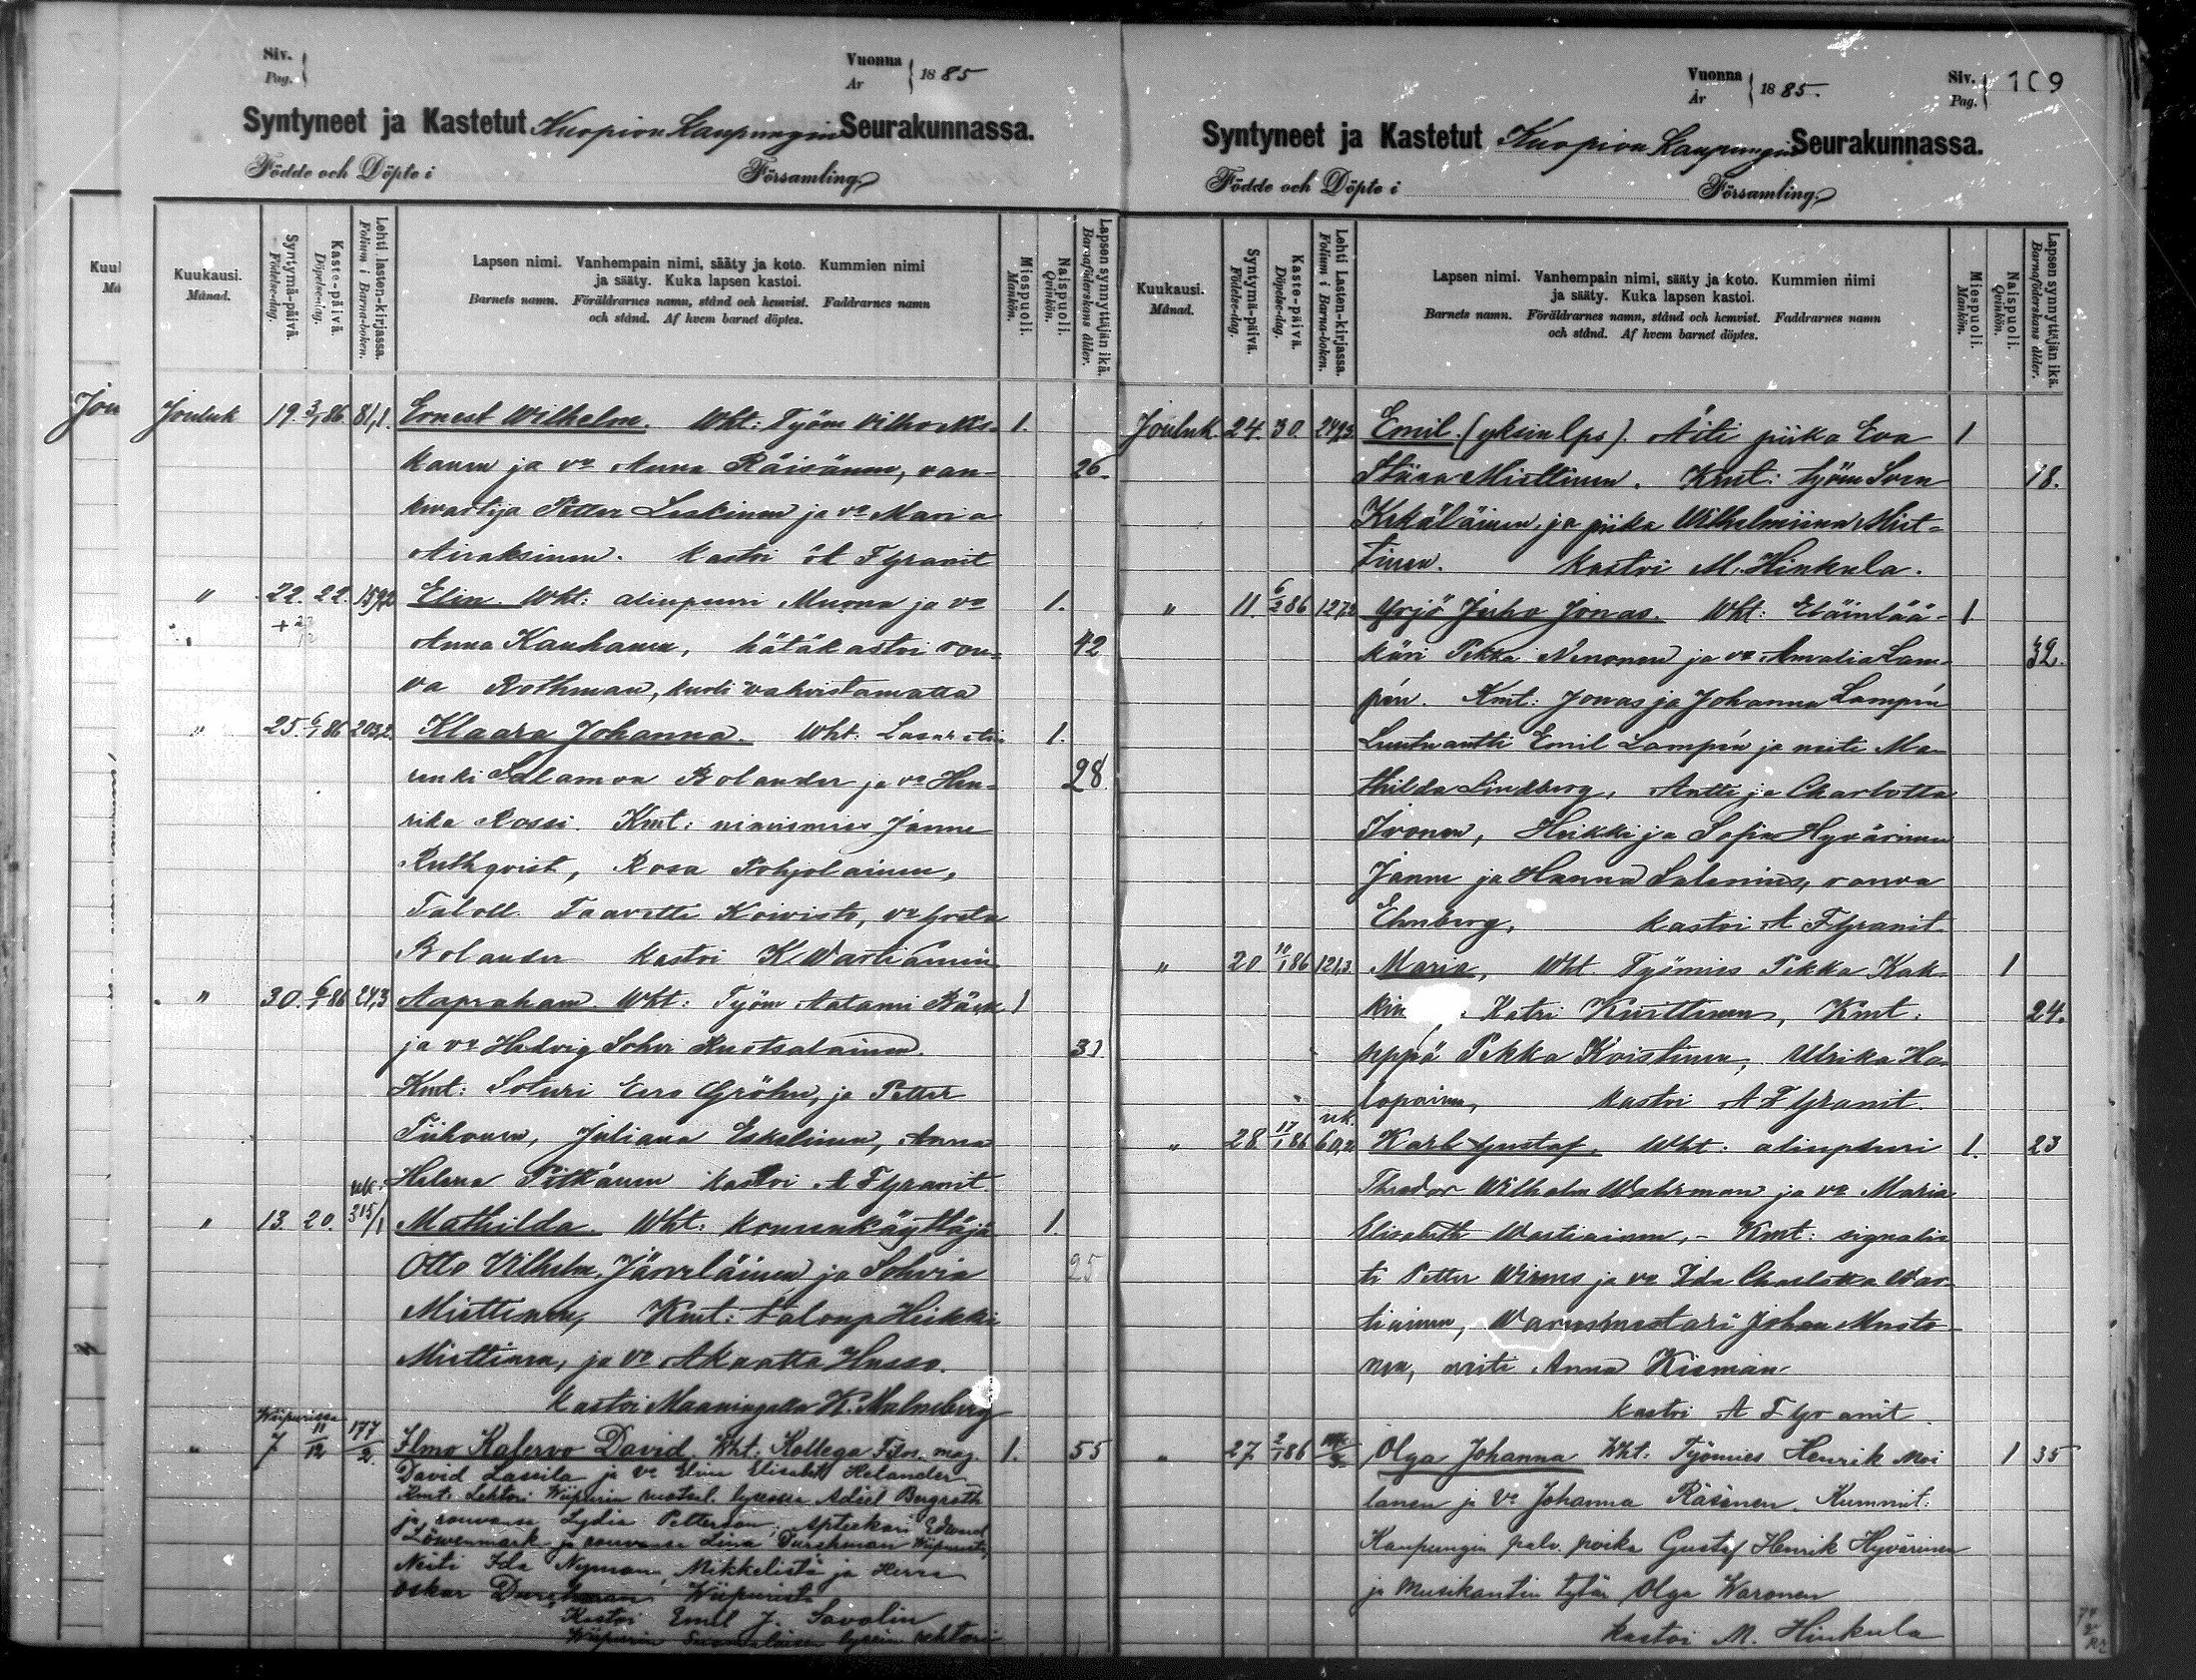 Siv.
Pag.
Vuonna
År
1885
Syntyneet ja Kastetut Kuopion Kaupungin Seurakunnassa.
Födde och Döpte i Församling
Kuukausi.
Månad.
Syntymä-päivä.
Födelse-dag.
Kaste-päivä.
Döpelse-dag.
Lehti lasten-kirjassa.
Folium i Barna-boken.
Lapsen nimi. Vanhempain nimi, sääty ja koto. Kummien nimi
ja sääty. Kuka lapsen kastoi.
Barnets namn. Föräldrarnes namn, stånd och hemvist. Faddrarnes namn
och stånd. Af hvem barnet döptes.
Miespuoli.
Mankön.
Naispuoli.
Qvinkön.
Lapsen synnyttäjän ikä.
Barnaföderskans ålder.
Jouluk 19. 3/1 86 81,1. Ernest Wilhelm. Wht: Työm Vilho Mis- 1.
kanen ja vo Anna Räisänen, van- 26.
kivartija Petter Leskinen ja vo Maria
Airaksinen. kastoi A F Granit
" 22. 22. Elin. Wht: alinpuuri Muona ja vo 1.
Anna Kauhanen, hätäkastoi rou- 42
va Rothman, kuoli vahvistamatta
" 25. 6/1 86 203,2. Klaara Johanna. Wht: Lasaretin 1.
renki Salamon Bolander ja vo Hen- 28
rika Rossi. Kmt: nimismies Janne
Ruthqvist, Rosa Pohjolainen,
Taloll. Taavetti Koivisto, vo Greta
Bolander kastoi K Wartiainen
" 30. 6/1 86 24,3 Aapraham. Wht: Työm Aatami Räsk 1
ja vo Hedvig Sohvi Ruotsalainen. 31
Kmt: Soturi Eero Gröhn, ja Petter
Tiihonen, Juliana Eskelinen, Anna
Helena Pitkänen kastoi A F Granit.
" 13 20. 315/1 Mathilda. Wht: konenkäyttäjä 1.
Otto Vilhelm. Järveläinen ja Sohvia 25
Miettinen, Kmt: talonp Heikki
Miettinen, ja vo Akaatta Husso.
kastoi Maaningalla K. Malmberg
Wiipurissa
" 7 11/12 177/2. Ilmo Kalervo David. Wht: Kollega Filos. mag. 1. 55
David Lassila ja vo Elin Elisabet Helander
Kmt: Lehtori Wiipurin ruotsal. lyseossa Adiel Bergroth
ja rouvansa Lydia Petterson, Apteekari Edvard
Löwenmark ja rouvansa Lina Durchman Wiipurista,
Neiti Ida Nyman, Mikkelistä ja Herra
Oskar Durchman Wiipurista
Kastoi Emil J. Savolin
Wiipurin Suomalaisen lysein rehtori
Vuonna
År
1885.
Siv.
Pag.
109
Syntyneet ja Kastetut Kuopion Kaupungin Seurakunnassa.
Födde och Döpte i Församling
Kuukausi.
Månad.
Syntymä-päivä.
Födelse-dag.
Kaste-päivä.
Döpelse-dag.
Lehti Lasten-kirjassa.
Folium i Barna-boken.
Lapsen nimi. Vanhempain nimi, sääty ja koto. Kummien nimi
ja sääty. Kuka lapsen kastoi.
Barnets namn. Föräldrarnes namn, stånd och hemvist. Faddrarnes namn
och stånd. Af hvem barnet döptes.
Miespuoli.
Mankön.
Naispuoli.
Qvinkön.
Lapsen synnyttäjän ikä.
Barnaföderskans ålder.
Jouluk. 24. 30. Emil. (yksin lps). Äiti piika Eva 1
Stiina Miettinen. Kmt: työm Sven 18.
Kekäläinen, ja piika Wilhelmiina Miet-
tinen. kastoi M. Hinkula.
" 11. 6/2 86 127,2 Yrjö Juho Jonas. Wht: Eläinlää- 1.
käri Pekka Nenonen ja vo Amalia Lam- 32.
pén. Kmt: Jonas ja Johanna Lampén
Luutnantti Emil Lampén ja neiti Ma-
thilda Lindberg, Antti ja Charlotta
Ivonen, Heikki ja Sofia Hyvärinen
Janne ja Hanna Salenius, rouva
Ehnberg, kastoi A F Granit
" 20 10/1 86 121,3. Maria, Wht Työmies Pekka Kak- 1
kin Katri Knuttinen, Kmt: 24.
seppä Pekka Koistinen, Ulrika Ha-
lopainen, kastoi A F Granit.
" 28 17/1 86 60,2 Karl Gustaf. Wht: alinpuuri 1. 23
Theodor Wilhelm Wahrman ja vo Maria
Elisabeth Wartiainen, - Kmt: signalis-
ti Petter Wirens ja vo Ida Charlotta War-
tiainen, Warusmestari Johan Musto-
nen, neiti Anna Kisman
kastoi A F Granit.
" 27 2/1 86 Olga Johanna Wht: Työmies Henrik Moi 1 35
lanen ja Vo Johanna Räsänen. Kummit:
Kaupungin palv. poika Gustaf Henrik Hyvärinen
ja Musikantin tytär Olga Waronen
kastoi M. Hinkula